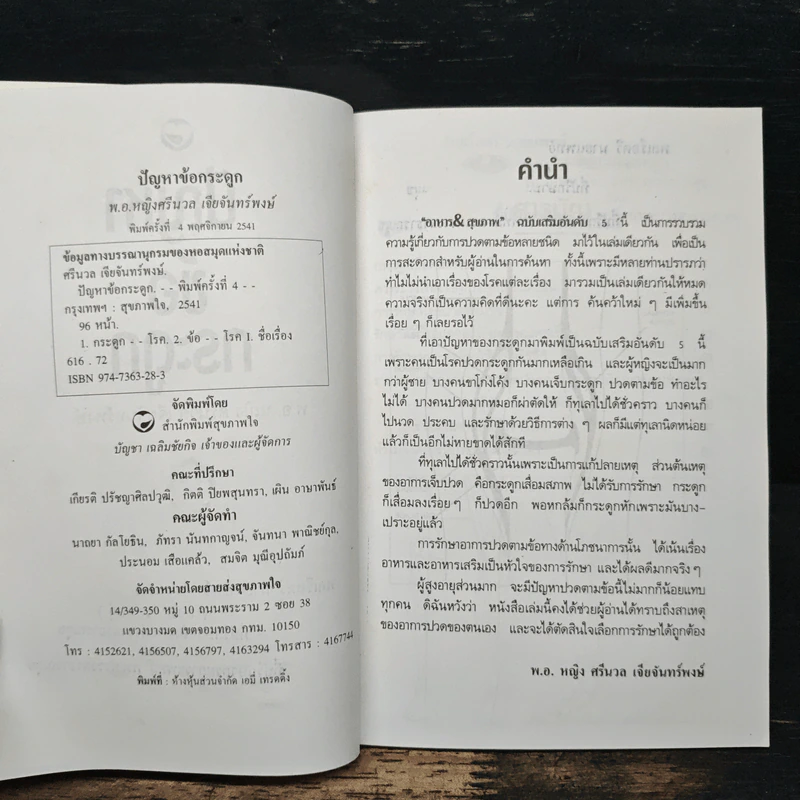 ปัญหาข้อกระดูก
พ.อ.หญิงศรีนวล เจียจันทร์พงษ์
พิมพ์ครั้งที่ 4 พฤศจิกายน 2541
ข้อมูลทางบรรณานุกรมของหอสมุดแห่งชาติ
ศรีนวล เจียจันทร์พงษ์.
ปัญหาข้อกระดูก. - - พิมพ์ครั้งที่ 4 - -
กรุงเทพฯ : สุขภาพใจ, 2541
96 หน้า.
1. กระดูก - - โรค. 2. ข้อ - - โรค I. ชื่อเรื่อง
616 . 72
ISBN 974-7363-28-3
จัดพิมพ์โดย
สำนักพิมพ์สุขภาพใจ
บัญชา เฉลิมชัยกิจ เจ้าของและผู้จัดการ
คณะที่ปรึกษา
เกียรติ ปรัชญาศิลปวุฒิ, กิตติ ปิยพสุนทรา, เผิน อาษาพันธ์
คณะผู้จัดทำ
นาถยา กัลโยธิน, ภัทรา นันทกาญจน์, จันทนา พาณิชย์กุล,
ประนอม เสือแคล้ว, สมจิต มุณีอุปถัมภ์
จัดจำหน่ายโดยสายส่งสุขภาพใจ
14/349-350 หมู่ 10 ถนนพระราม 2 ซอย 38
แขวงบางมด เขตจอมทอง กทม. 10150
โทร : 4152621, 4156507, 4156797, 4163294 โทรสาร : 4167744
พิมพ์ที่ : ห้างหุ้นส่วนจำกัด เอมี่ เทรดดิ้ง
คำนำ
"อาหาร& สุขภาพ" ฉบับเสริมอันดับ 5 นี้ เป็นการรวบรวม
ความรู้เกี่ยวกับการปวดตามข้อหลายชนิด มาไว้ในเล่มเดียวกัน เพื่อเป็น
การสะดวกสำหรับผู้อ่านในการค้นหา ทั้งนี้เพราะมีหลายท่านปรารภว่า
ทำไมไม่นำเอาเรื่องของโรคแต่ละเรื่อง มารวมเป็นเล่มเดียวกันให้หมด
ความจริงก็เป็นความคิดที่ดีนะคะ แต่การ ค้นคว้าใหม่ ๆ มีเพิ่มขึ้น
เรื่อย ๆ ก็เลยรอไว้
ที่เอาปัญหาของกระดูกมาพิมพ์เป็นฉบับเสริมอันดับ 5 นี้
เพราะคนเป็นโรคปวดกระดูกกันมากเหลือเกิน และผู้หญิงจะเป็นมาก
กว่าผู้ชาย บางคนขาโก่งโค้ง บางคนเจ็บกระดูก ปวดตามข้อ ทำอะไร
ไม่ได้ บางคนปวดมากหมอก็ผ่าตัดให้ ก็ทุเลาไปได้ชั่วคราว บางคนก็
ไปนวด ประคบ และรักษาด้วยวิธีการต่าง ๆ ผลก็มีแต่ทุเลานิดหน่อย
แล้วก็เป็นอีกไม่หายขาดได้สักที
ที่ทุเลาไปได้ชั่วคราวนั้นเพราะเป็นการแก้ปลายเหตุ ส่วนต้นเหตุ
ของอาการเจ็บปวด คือกระดูกเสื่อมสภาพ ไม่ได้รับการรักษา กระดูก
ก็เสื่อมลงเรื่อย ๆ ก็ปวดอีก พอหกล้มก็กระดูกหักเพราะมันบาง-
เปราะอยู่แล้ว
การรักษาอาการปวดตามข้อทางด้านโภชนาการนั้น ได้เน้นเรื่อง
อาหารและอาหารเสริมเป็นหัวใจของการรักษา และได้ผลดีมากจริงๆ
ผู้สูงอายุส่วนมาก จะมีปัญหาปวดตามข้อนี้ไม่มากก็น้อยแทบ
ทุกคน ดิฉันหวังว่า หนังสือเล่มนี้คงได้ช่วยผู้อ่านได้ทราบถึงสาเหตุ
ของอาการปวดของตนเอง และจะได้ตัดสินใจเลือกการรักษาได้ถูกต้อง
พ.อ. หญิง ศรีนวล เจียจันทร์พงษ์